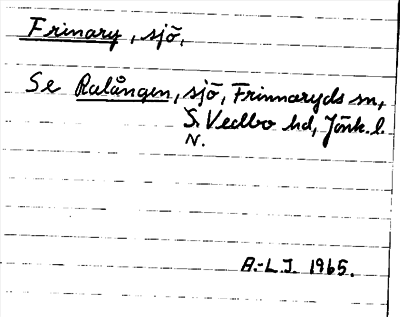 Frinary, sjö,
Se Ralången, sjö, Frinnaryds sn,
S. Vedbo hd, Jönk. l.
N.
A.-L. J. 1965.